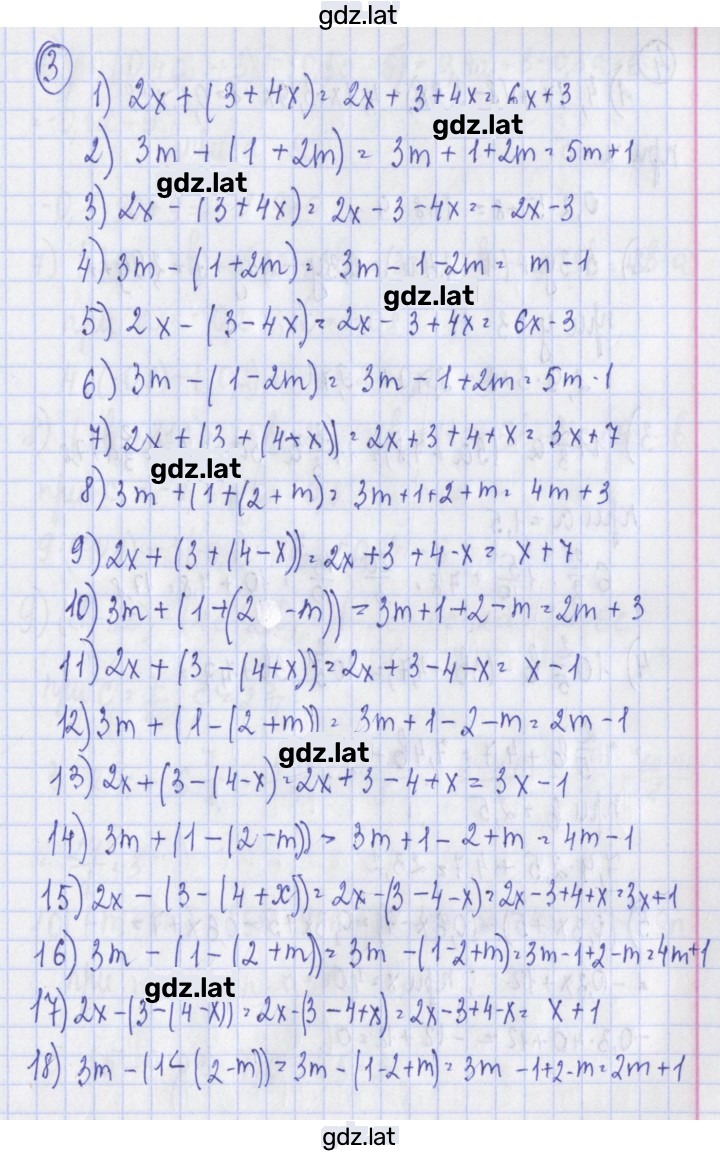 gdz.lat
3
1) 2x + (3 + 4x) = 2x + 3 + 4x = 6x + 3
gdz.lat
2) 3m + (1 + 2m) = 3m + 1 + 2m = 5m + 1
gdz.lat
3) 2x - (3 + 4x) = 2x - 3 - 4x = - 2x - 3
4) 3m - (1 + 2m) = 3m - 1 - 2m = m - 1
gdz.lat
5) 2x - (3 - 4x) = 2x - 3 + 4x = 6x - 3
6) 3m - (1 - 2m) = 3m - 1 + 2m = 5m - 1
7) 2x + (3 + (4 + x)) = 2x + 3 + 4 + x = 3x + 7
gdz.lat
8) 3m + (1 + (2 + m) = 3m + 1 + 2 + m = 4m + 3
9) 2x + (3 + (4 - x)) = 2x + 3 + 4 - x = x + 7
10) 3m + (1 + (2 - m)) = 3m + 1 + 2 - m = 2m + 3
11) 2x + (3 - (4 + x)) = 2x + 3 - 4 - x = x - 1
12) 3m + (1 - (2 + m)) = 3m + 1 - 2 - m = 2m - 1
gdz.lat
13) 2x + (3 - (4 - x) = 2x + 3 - 4 + x = 3x - 1
14) 3m + (1 - (2 - m)) = 3m + 1 - 2 + m = 4m - 1
15) 2x - (3 - (4 + x)) = 2x - (3 - 4 - x) = 2x - 3 + 4 + x = 3x + 1
16) 3m - (1 - (2 + m)) = 3m - (1 - 2 + m) = 3m - 1 + 2 - m = 4m + 1
gdz.lat
17) 2x - (3 - (4 - x)) = 2x - (3 - 4 + x) = 2x - 3 + 4 - x = x + 1
18) 3m - (1 - (2 - m)) = 3m - (1 - 2 + m) = 3m - 1 + 2 - m = 2m + 1
gdz.lat